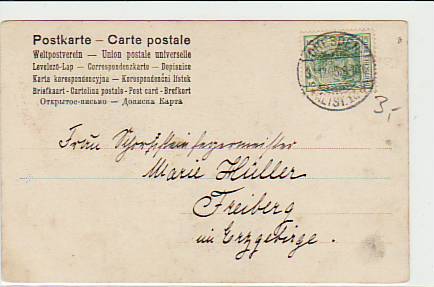 Postkarte – Carte postale
Weltpostverein – Union postale universelle
Levelező-Lap – Correspondenzkarte – Dopisnice
Karta korespondencyjna – Korespondenční lístek
Briefkaart – Cartolina postale – Post card – Brefkort
Открытое письмо – Дописна Карта
DRESDEN
ALTST.
3,-
Frau Schornsteinfegermeister
Marie Hüller
Freiberg
im Erzgebirge.